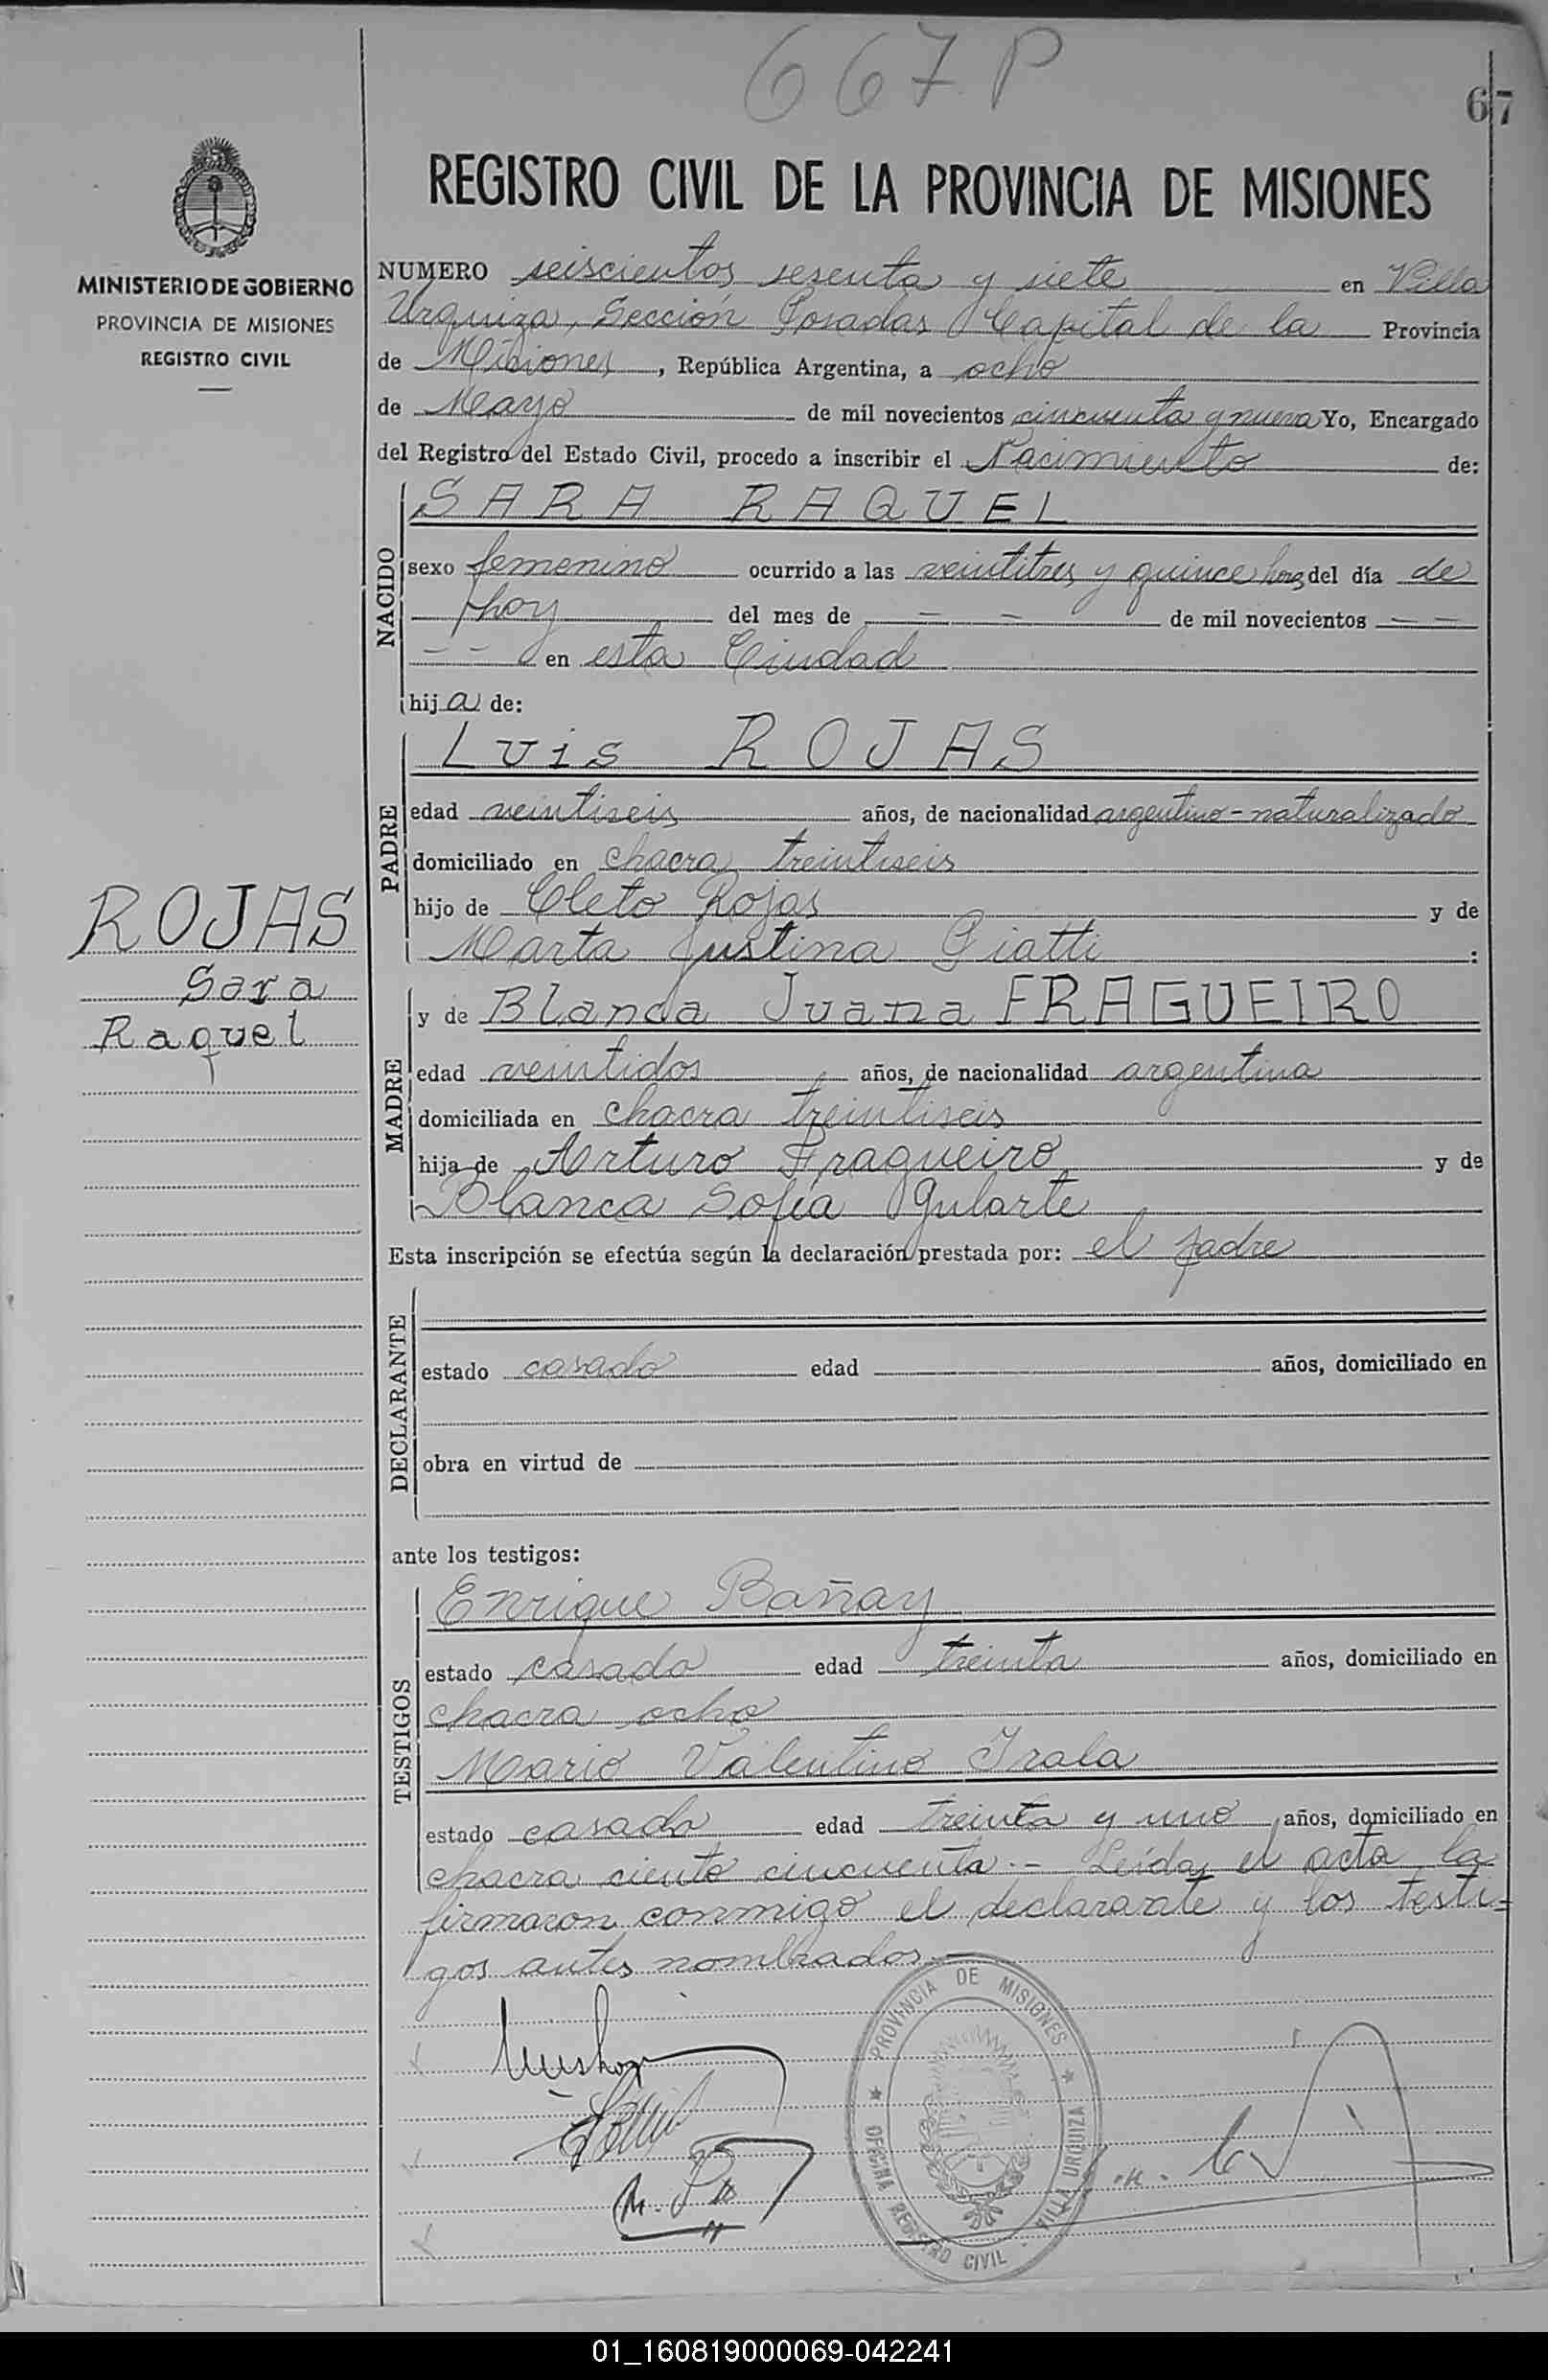 667 P
67
REGISTRO CIVIL DE LA PROVINCIA DE MISIONES
MINISTERIO DE GOBIERNO
PROVINCIA DE MISIONES
REGISTRO CIVIL
NUMERO seiscientos sesenta y siete en Villa
Urquiza, Sección Posadas Capital de la Provincia
de Misiones, República Argentina, a ocho
de Mayo de mil novecientos cincuenta y nueve Yo, Encargado
del Registro del Estado Civil, procedo a inscribir el Nacimiento de:
NACIDO
SARA RAQUEL
sexo femenino ocurrido a las veintitres y quince hors del día de
hoy del mes de - - de mil novecientos - -
- - en esta Ciudad
hija de:
PADRE
Luis ROJAS
edad veintiseis años, de nacionalidad argentino-naturalizado
domiciliado en chacra treintiseis
hijo de Cleto Rojas y de
Marta Justina Giatti :
ROJAS
Sara
Raquel
MADRE
y de Blanca Juana FRAGUEIRO
edad veintidos años, de nacionalidad argentina
domiciliada en chacra treintiseis
hija de Arturo Fragueiro y de
Blanca Sofía Gularte
Esta inscripción se efectúa según la declaración prestada por: el padre
DECLARANTE
estado casado edad años, domiciliado en
obra en virtud de
ante los testigos:
TESTIGOS
Enrique Bañay
estado casado edad treinta años, domiciliado en
chacra ocho
Mario Valentino Irala
estado casado edad treinta y uno años, domiciliado en
chacra ciento cincuenta.- Leída el acta la
firmaron conmigo el declarante y los testi-
gos antes nombrados.-
PROVINCIA DE MISIONES
OFICINA REGISTRO CIVIL VILLA URQUIZA
01_160819000069-042241